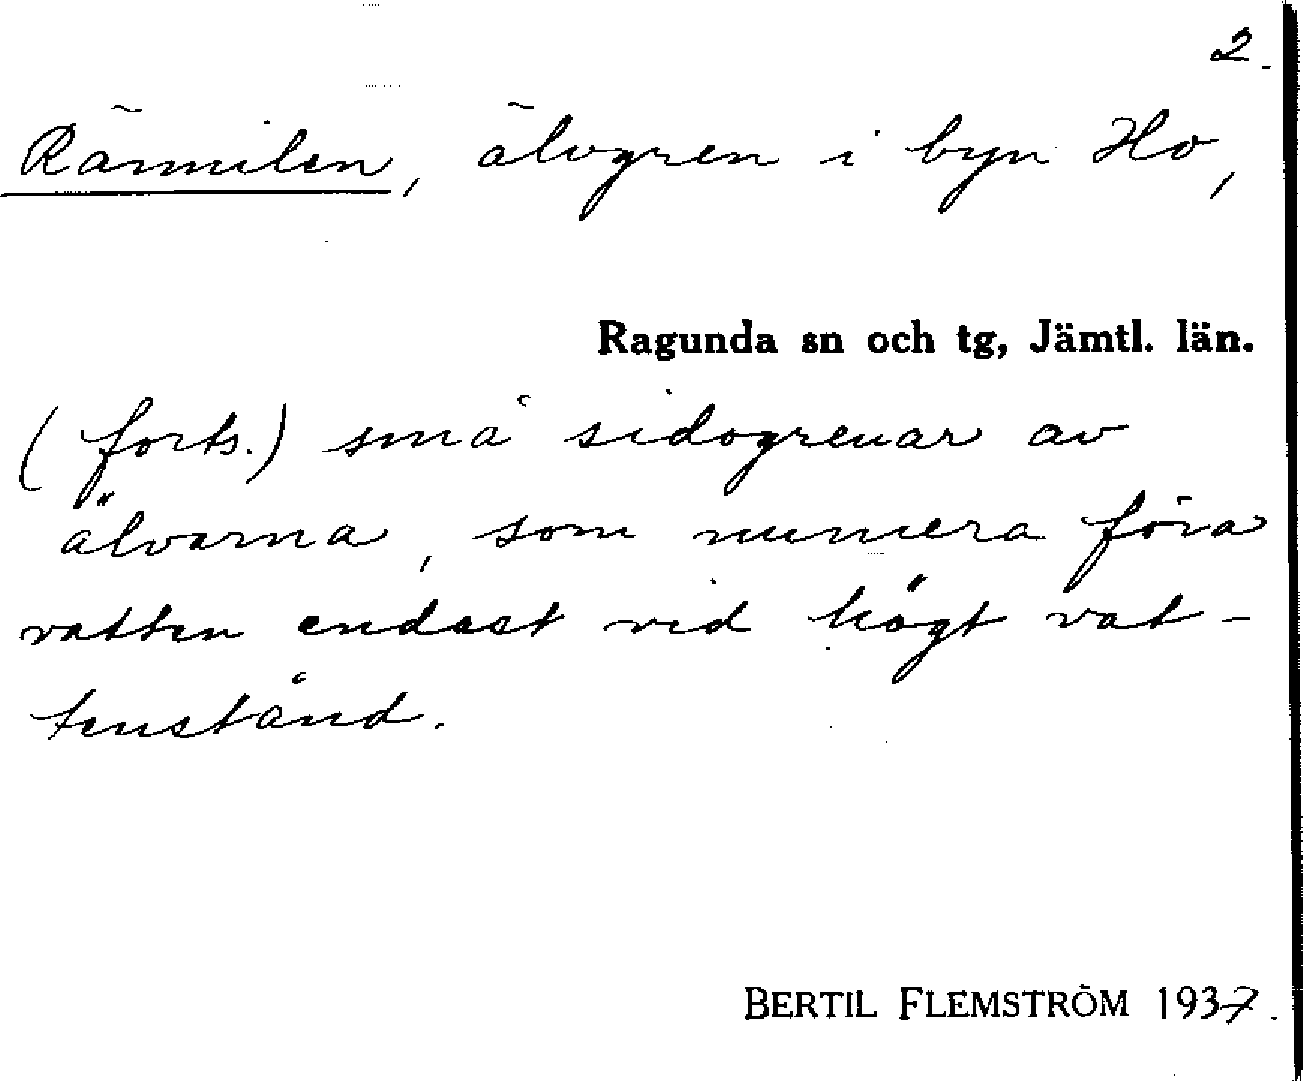 2.
Rämnilen, älvgren i byn Ho,
Ragunda sn och tg, Jämtl. län.
(forts.) små sidogrenar av
älvarna, som numera föra
vatten endast vid högt vat-
tenstånd.
BERTIL FLEMSTRÖM 1937.